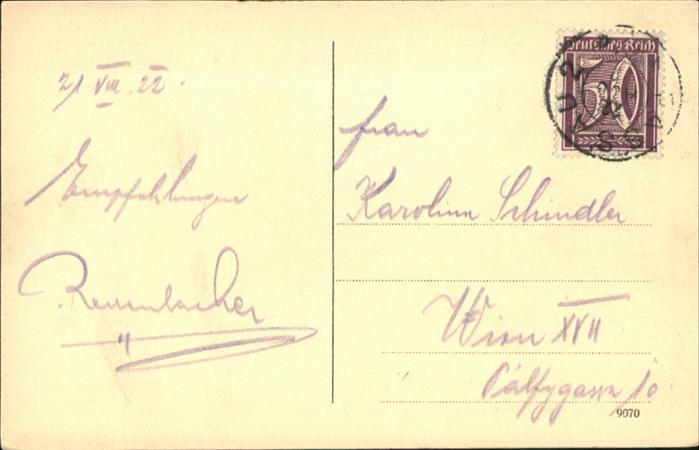 21 VIII 22.
Empfehlungen
Deutsches Reich
50
Frau
Karolina Schindler
Wien XVII
Pálfygasse 10
9070